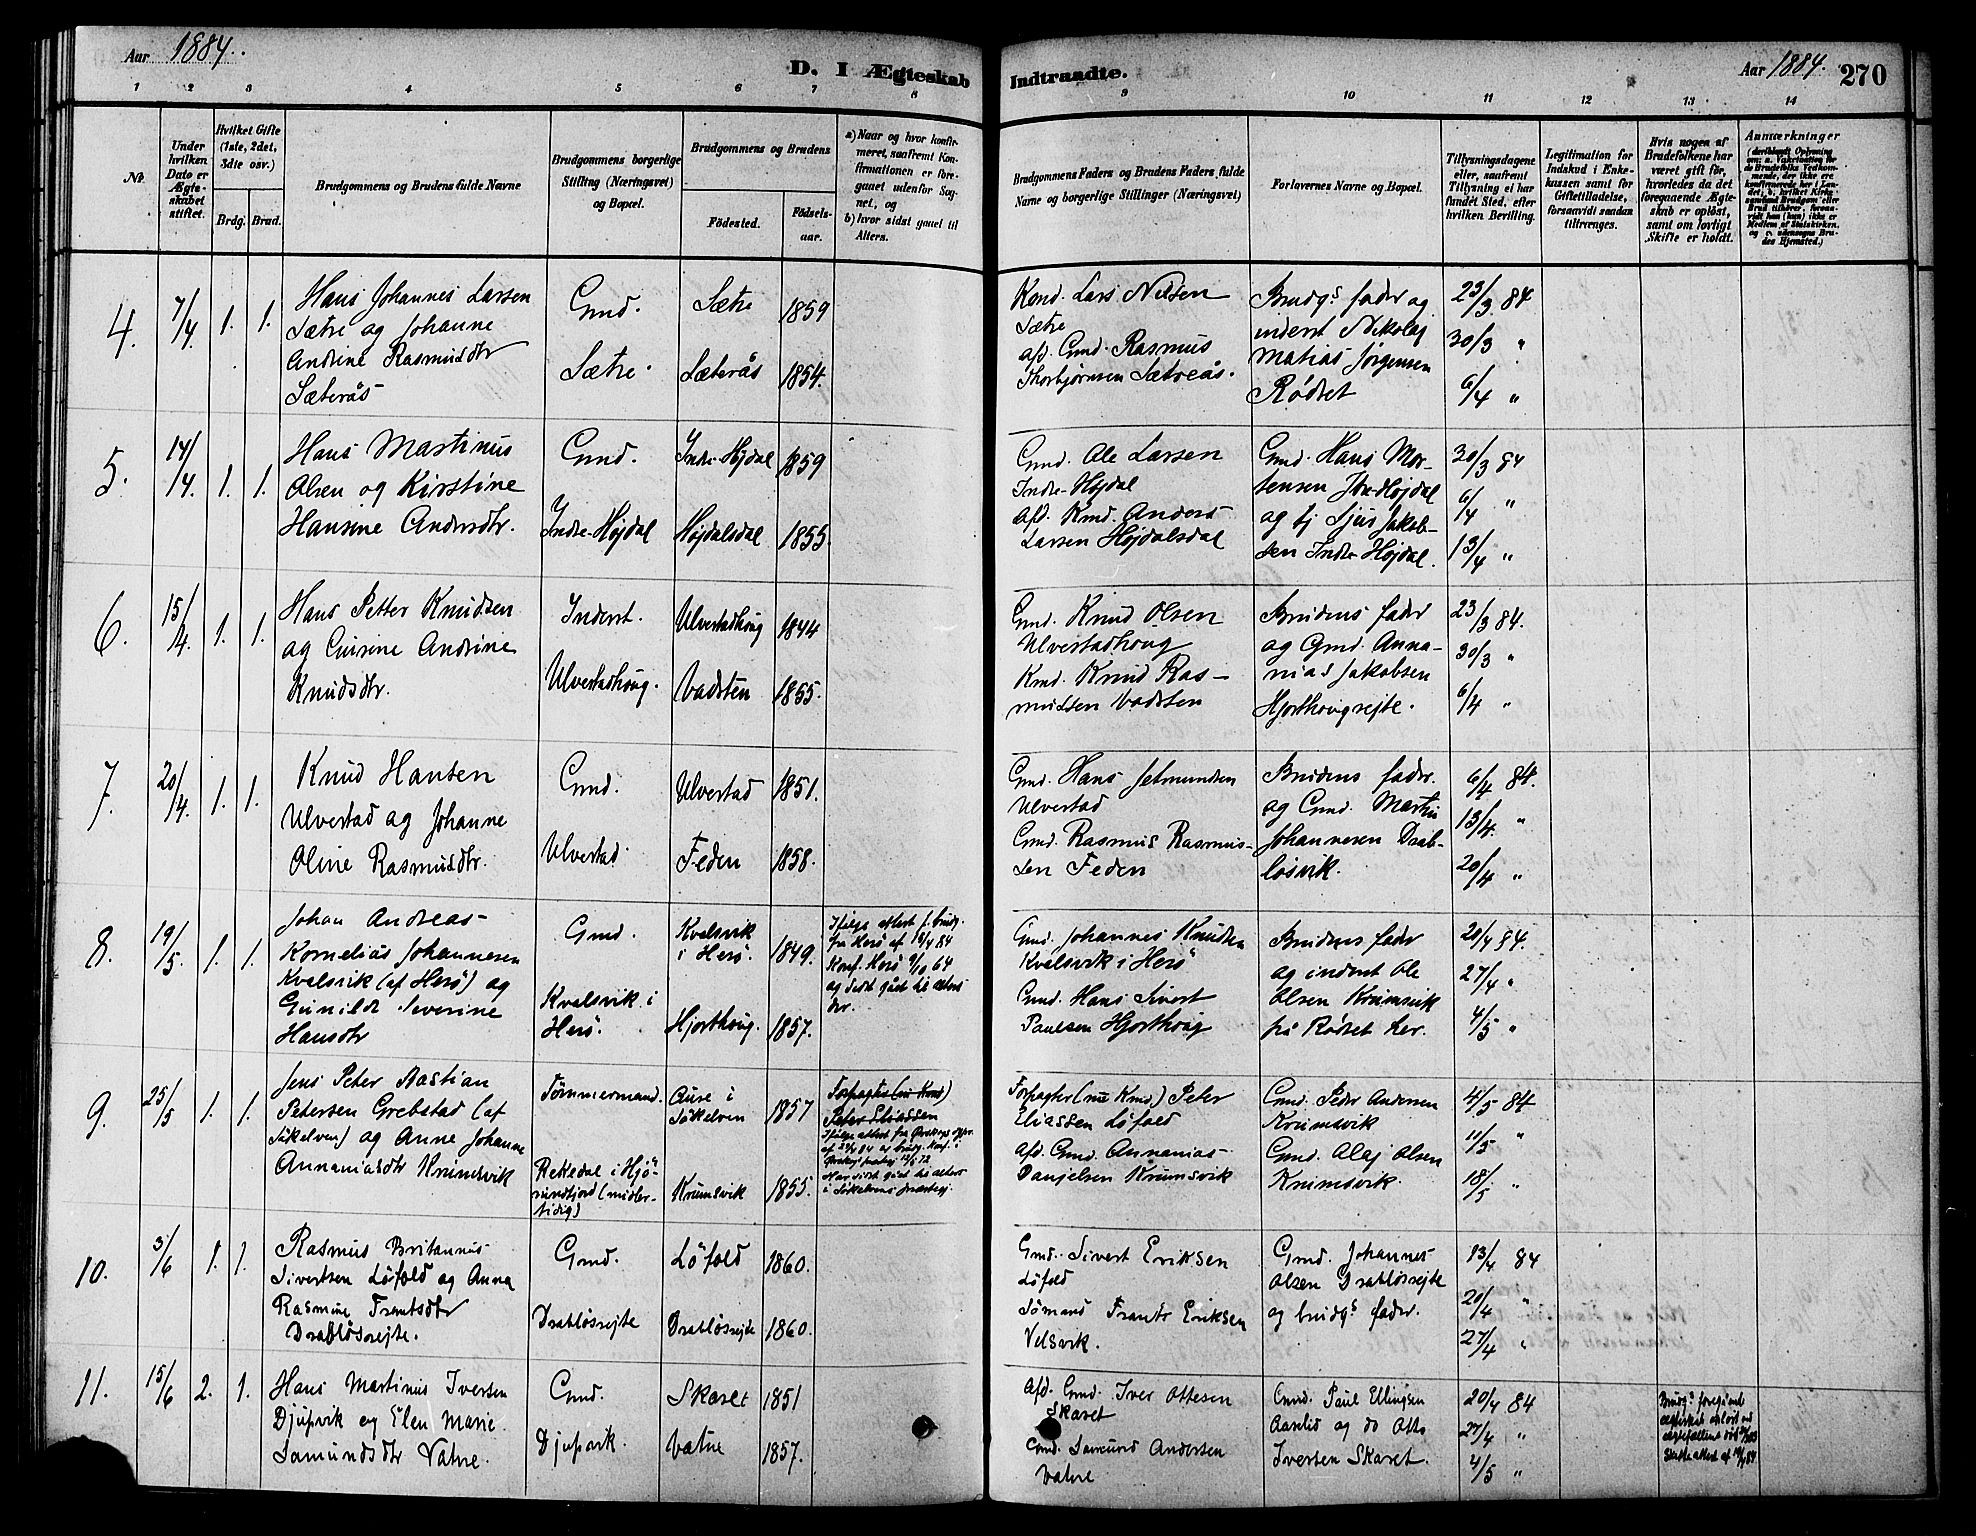 Aar 1884.
D. I Ægteskab
1 2 3 4 5 6 7 8
No.
Under hvilken Dato er Ægteskabet stiftet.
Hvilket Gifte (1ste, 2det, 3die osv.)
Brdg. Brud.
Brudgommens og Brudens fulde Navne
Brudgommens borgerlige Stilling (Næringsvei) og Bopæl.
Brudgommens og Brudens
Fødested. Fødselsaar.
a) Naar og hvor konfirmeret, saafremt Konfirmationen er foregaaet udenfor Sognet, og
b) hvor sidst gaaet til Alters.
4. 7/4 1. 1. Hans Johannes Larsen
Sætre og Johanne
Andrine Rasmusdtr
Sæterås
Gmd.
Sætre.
Sætre 1859
Sæterås 1854.
5. 14/4. 1. 1. Hans Martinus
Olsen og Kirstine
Hansine Andersdtr.
Gmd.
Indre-Højdal
Indre Højdal 1859
Højdalsdal 1855.
6. 15/4. 1. 1. Hans Petter Knudsen
ag Gurine Andrine
Knudsdtr.
Inderst.
Ulvestadhoug.
Ulvestadhoug 1844
Vadsten 1855.
7. 20/4. 1. 1. Knud Hansen
Ulvestad ag Johanne
Oline Rasmusdtr.
Gmd.
Ulvestad.
Ulvestad 1851.
Feden 1858.
8. 19/5. 1. 1. Johan Andreas
Kornelius Johannesen
Kvalsvik (af Herø) ag
Gunilde Severine
Hansdtr
Gmd.
Kvalsvik i
Herø.
Kvalsvik
i Herø. 1849.
Hjorthoug. 1857.
Ifølge attest f. brudg.
fra Herø af 19/4 84
Konf. Herø 9/10 64
og sidst gået til alters
der.
9. 25/5 1. 1. Jens Peter Bastian
Petersen Grebstad (af
Søkelven) ag Anne Johanne
Annaniasdtr Krumsvik
Tømmermand.
Rekedal i Hjø-
rundfjord (midler-
tidig)
Aure i
Søkelven 1857
Krumsvik 1855.
Forpagter (nu Kmd)
Peter Eliassen
10. 3/6 1. 1. Rasmus Britannus
Sivertsen Løfold og Anna
Rasmine Frantsdtr
Drabløsrejte.
Gmd.
Drabløsrejte
Løfold 1860.
Drabløsrejte 1860.
11. 15/6 2. 1. Hans Martinus Iversen
Djupvik og Elen Marie
Samundsdtr Vatne.
Gmd.
Djupvik.
Skaret 1851
Vatne 1857.
Indtraadte.
Aar 1884. 270
9 10 11 12 13 14
Brudgommens Faders og Brudens Faders fulde Navne og borgerlige Stillinger (Næringsvei)
Forlovernes Navne og Bopæl.
Tillysningsdagene eller, saafremt Tillysning ei har fundet Sted, efter hvilken Bevilling.
Legitimation for Indskud i Enkekassen samt for Giftetilladelse, forsaavidt saadan tiltrænges.
Hvis nogen af Brudefolkene har været gift før, hvorledes da det foregaaende Ægteskab er opløst, samt om lovligt Skifte er holdt.
Anmærkninger
Kmd. Lars Nilsen
Sætre
afd. Gmd. Rasmus
Thorbjørnsen Sætreås.
Brudgs fader og
inderst Nikolaj
Matias Jørgensen
Rødset
23/3 84
30/3 "
6/4 "
Gmd. Ole Larsen
Indre-Højdal
Afd. Kmd. Anders
Larsen Højdalsdal
Gmd. Hans Mor-
tensen Ytre-Højdal
og Tj Sjur Jakob-
sen Indre Højdal.
30/3 84
6/4 "
13/4 "
Gmd. Knud Olsen
Ulvestadhoug
Kmd. Knud Ras-
mussen Vadsten
Brudens fader
ag Gmd. Anna-
nias Jakobsen
Hjorthougrejte.
23/3 84.
30/3 "
6/4 "
Gmd. Hans Jetmundsen
Ulvestad
Gmd. Rasmus Rasmus-
sen Feden
Brudens fader.
ag Gmd. Martin
Johannesen Drab-
løsvik.
6/4 84.
13/4. "
20/4 "
Gmd. Johannes Knudsen
Kvalsvik i Herø
Gmd. Hans Sivert
Paulsen Hjorthoug
Brudens fader
ag inderst Ole
Olsen Krumsvik
på Rødset her.
20/4 84.
27/4 "
4/5 "
Forpagter (nu Kmd.) Peter
Eliassen Løfold
Afd. Gmd. Annanias
Danjelsen Krumsvik
Gmd. Peder Andersen
Krumsvik
Gmd. Olaj Olsen
Krumsvik.
4/5 84
11/5 "
18/5 "
Gmd. Sivert Eriksen
Løfold
Sømand Frants Eriksen
Velsvik.
Gmd. Johannes
Olsen Drabløsrejte
og brudgs fader.
13/4 84
20/4 "
27/4 "
Afd. Gmd. Iver Ottesen
Skaret
Gmd. Samund Andersen
Vatne
Gmd. Paul Ellingsen
Aaslid og do Otto
Iversen Skaret.
20/4 84
27/4 "
4/5 "